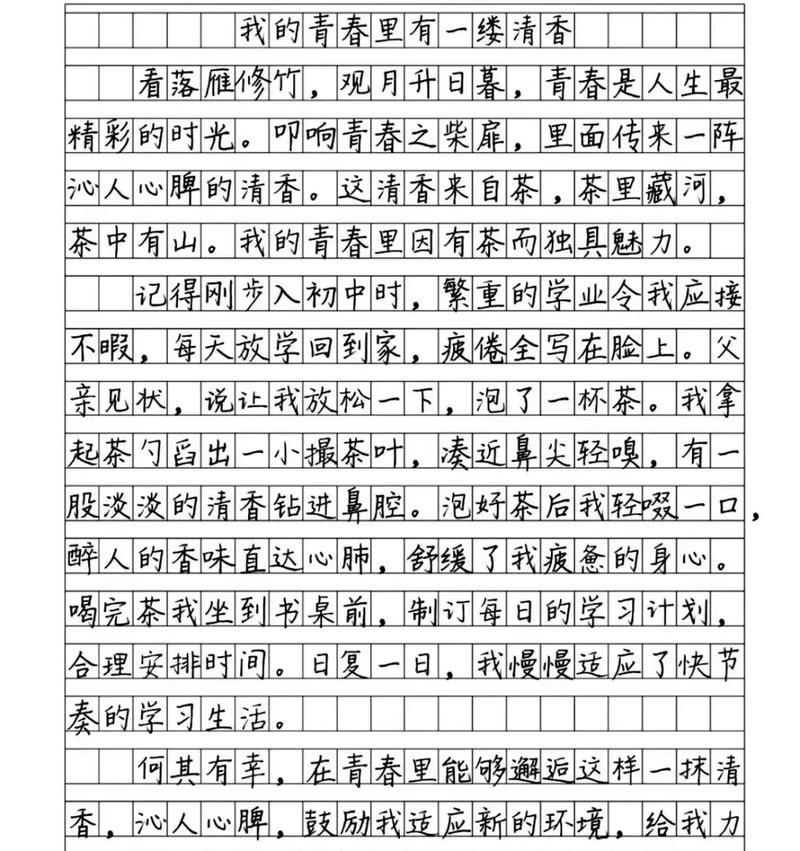 我的青春里有一缕清香
看落雁修竹，观月升日暮，青春是人生最
精彩的时光。叩响青春之柴扉，里面传来一阵
沁人心脾的清香。这清香来自茶，茶里藏河，
茶中有山。我的青春里因有茶而独具魅力。
记得刚步入初中时，繁重的学业令我应接
不暇，每天放学回到家，疲倦全写在脸上。父
亲见状，说让我放松一下，泡了一杯茶。我拿
起茶勺舀出一小撮茶叶，凑近鼻尖轻嗅，有一
股淡淡的清香钻进鼻腔。泡好茶后我轻啜一口，
醉人的香味直达心肺，舒缓了我疲惫的身心。
喝完茶我坐到书桌前，制订每日的学习计划，
合理安排时间。日复一日，我慢慢适应了快节
奏的学习生活。
何其有幸，在青春里能够邂逅这样一抹清
香，沁人心脾，鼓励我适应新的环境，给我力